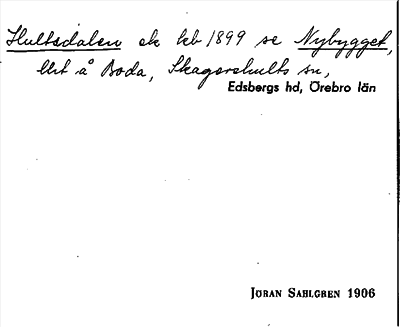 Hultsdalen ek kb 1899 se Nybygget,
lht å Boda, Skagershults sn,
Edsbergs hd, Örebro län
JÖRAN SAHLGREN 1906